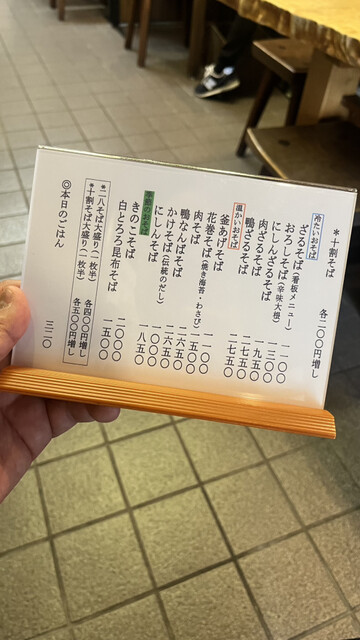 *十割そば 各二〇〇円増し
冷たいおそば
ざるそば(看板メニュー) 一一〇〇
おろしそば(辛味大根) 一三〇〇
にしんざるそば 一九五〇
肉ざるそば 一七五〇
鴨ざるそば 二七五〇
温かいおそば
釜あげそば 一一〇〇
花巻そば(焼き海苔・わさび) 一五〇〇
肉そば 一六五〇
鴨なんばそば 二六五〇
かけそば(伝統のだし) 一〇〇〇
にしんそば 一八五〇
季節のおそば
きのこそば 二〇〇〇
白とろろ昆布そば 一五〇〇
*二八そば大盛り(一枚半) 各四〇〇円増し
*十割そば大盛り(一枚半) 各五〇〇円増し
◎本日のごはん 三一〇